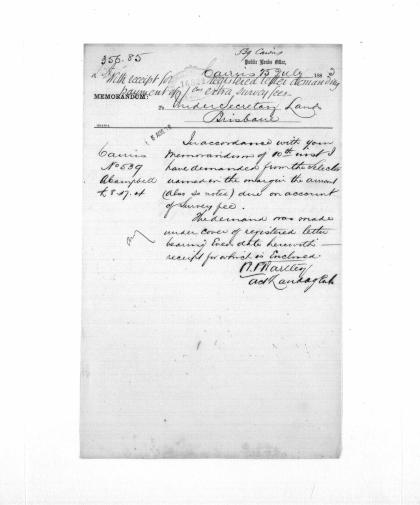 356.85
Public Lands Office,
Cairns 15 July 188
With receipt for registered letter demanding
payment of extra survey fees
MEMORANDUM:
to Under Secretary Lands
Brisbane
In accordance with your
Cairns
Memorandum of 10th inst I
No 539
have demanded from the Selector
A Campbell
named in the margin the amount
£8.17.4
(also so noted) due on account
of Survey fee.
The demand was made
under cover of registered letter
bearing even date herewith
receipt for which is Enclosed
Act Land Agent